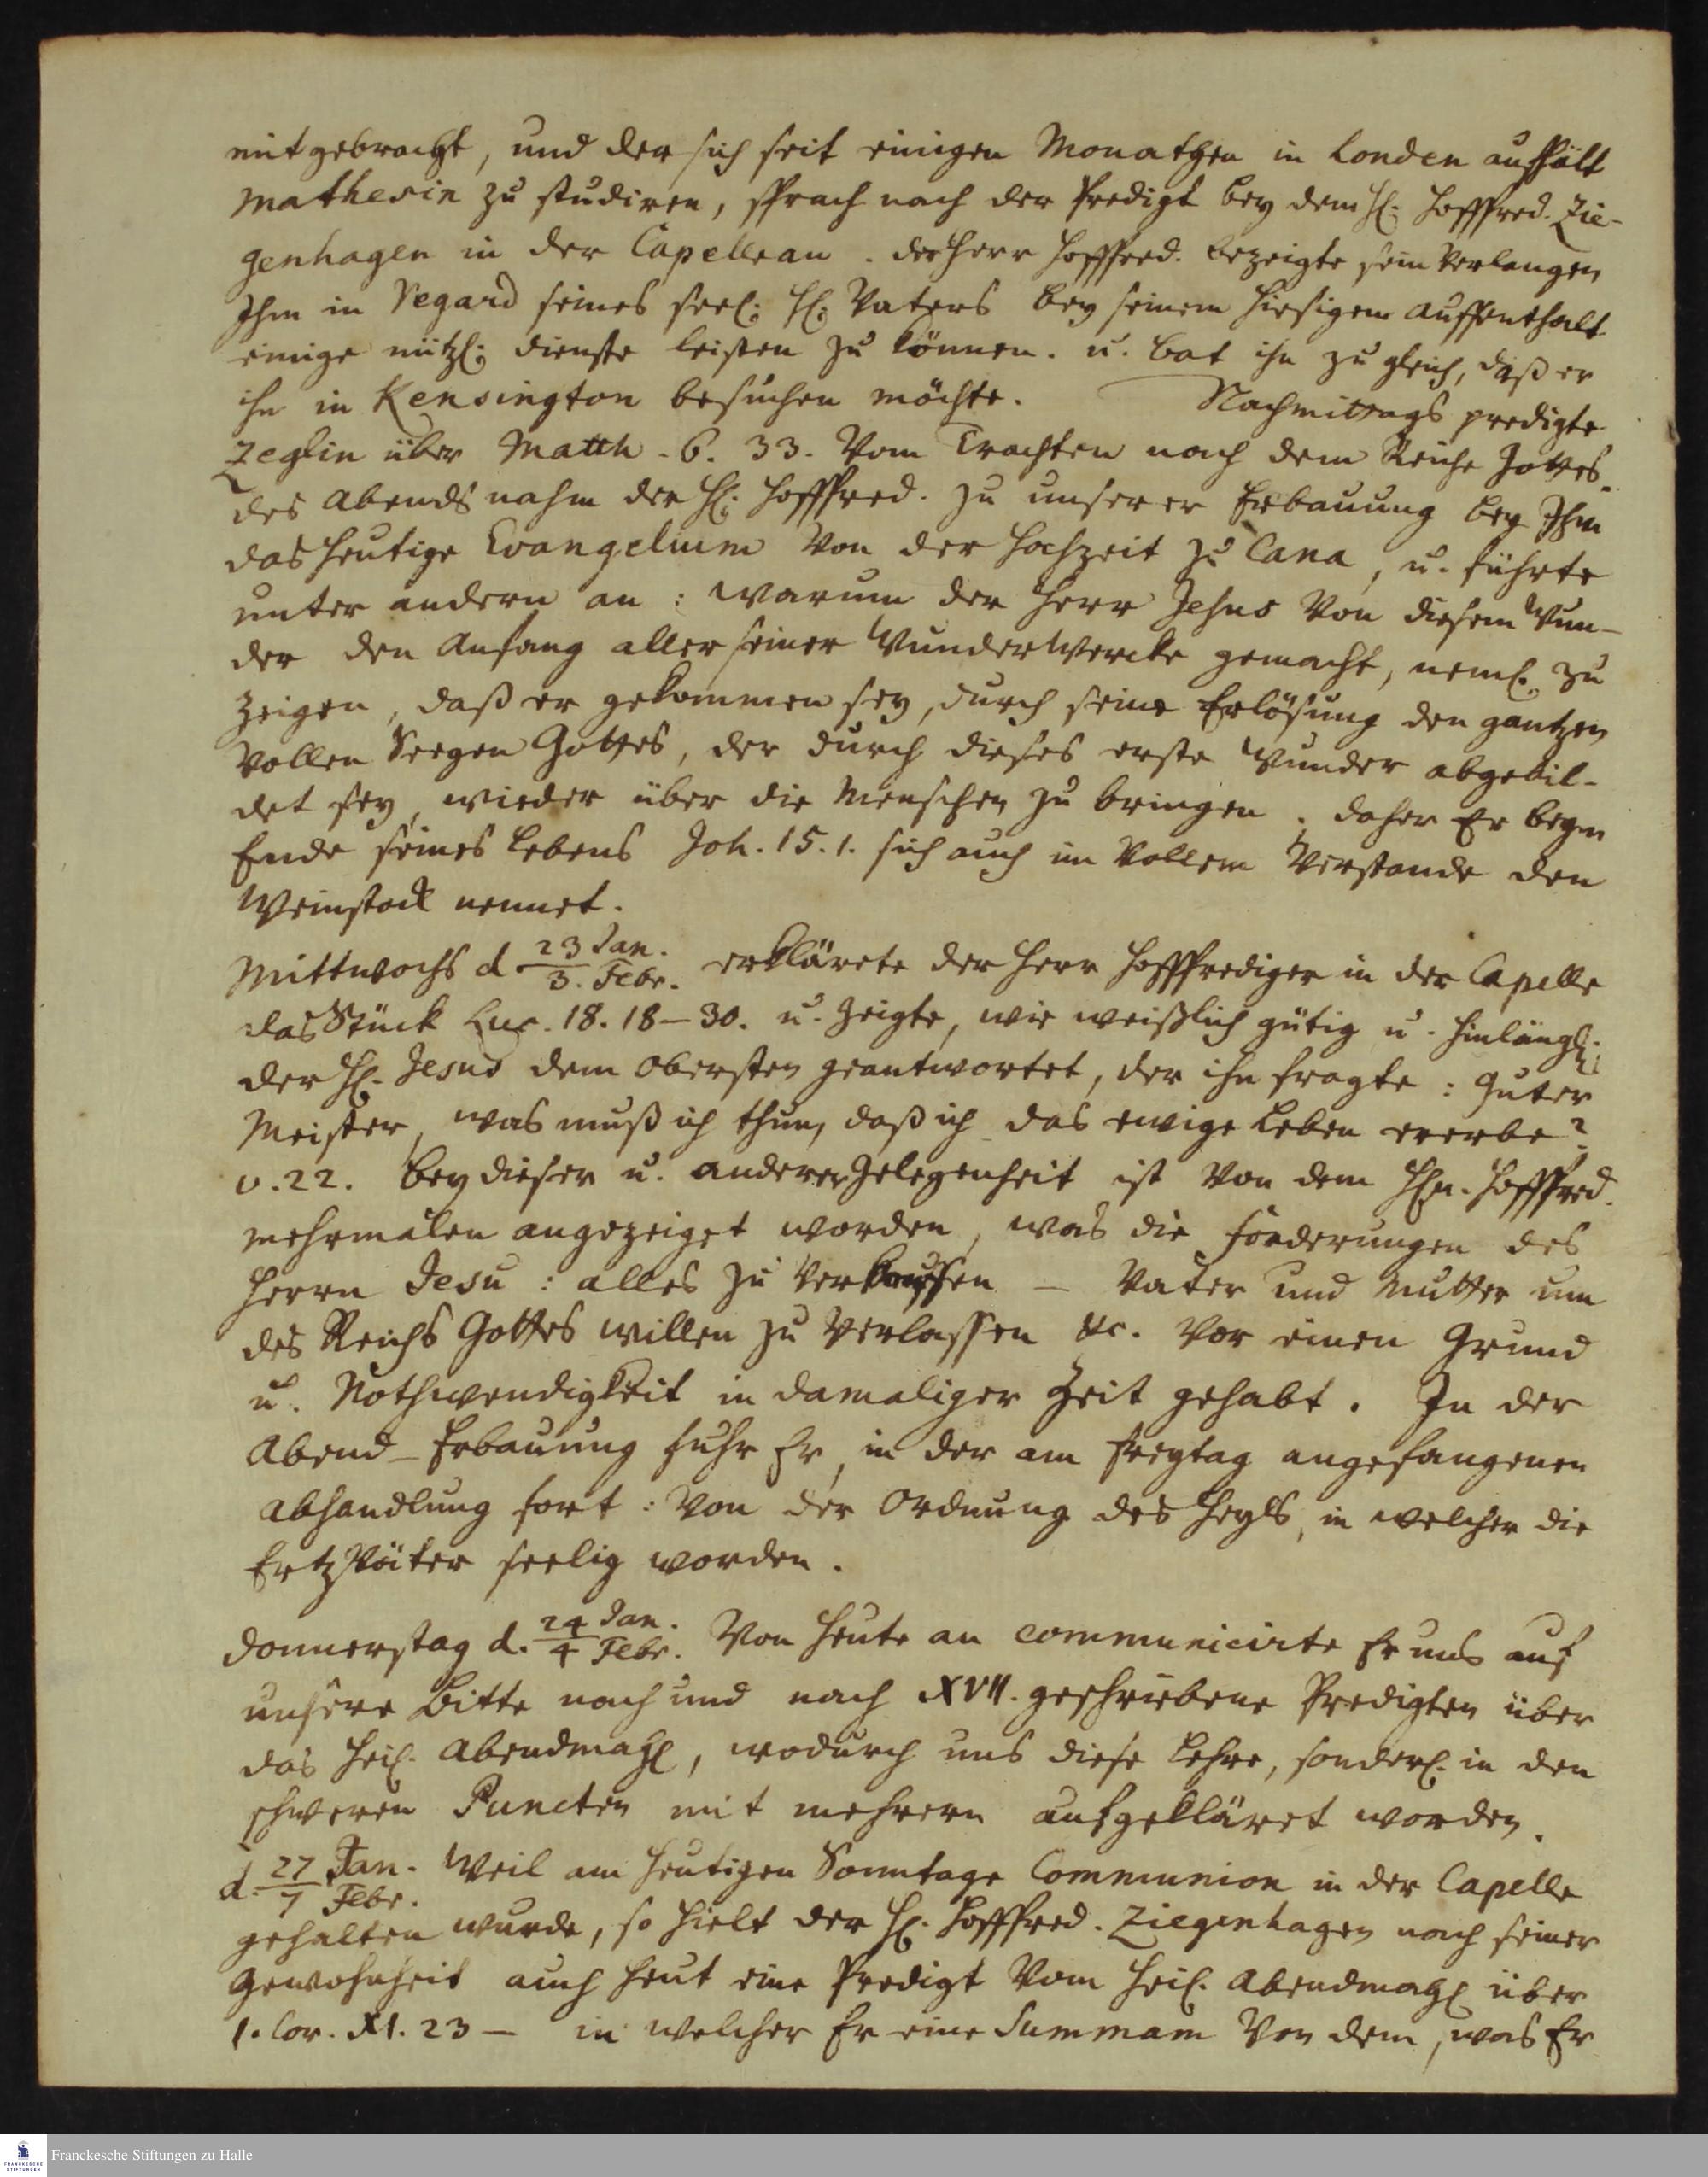 mitgebracht, und der sich seit einigen Monathen in Londen auffhält
Mathesin zu studiren, sprach nach der Predigt bey dem H. Hoffpred. Zie-
genhagen in der Capelle an. der Herr Hoffpred. bezeigte sein Verlangen
Ihm in Regard seines seel. H. Vaters bey seinem hiesigen Auffenthalt
einige nützl. dienste leisten zu können. u. bat ihn zu gleich, daß er
ihn in Kensington besuchen möchte. Nachmittags predigte
Zeglin über Matth. 6. 33. Vom Trachten nach dem Reiche Gottes.
des Abends nahm der H. Hoffpred. zu unserer Erbauung bey Ihm
das heutige Evangelium von der Hochzeit zu Cana, u. führte
unter andern an: warum der Herr Jesus von diesem Wun-
der den Anfang aller seiner WunderWercke gemacht, neml. zu
zeigen, daß er gekommen sey, durch seine Erlösung den gantzen
vollen Seegen Gottes, der durch dieses erste Wunder abgebil-
det sey, wieder über die Menschen zu bringen. daher Er beym
Ende seines Lebens Joh. 15. 1. sich auch im vollem Verstande den
Weinstock nennet.
Mittwochs d. 23 Jan. / 3. Febr. erklärete der Herr Hoffprediger in der Capelle
das Stück Luc. 18. 18–30. u. zeigte, wie weißlich gütig u. hinlängl.
der H. Jesus dem Obersten geantwortet, der ihn fragte: Guter
Meister, was muß ich thun, daß ich das ewige Leben ererbe?
v. 22. Bey dieser u. anderer Gelegenheit ist von dem Hn. Hoffpred.
mehrmalen angezeiget worden, was die Forderungen des
Herrn Jesu: alles zu verkauffen – Vater und Mutter um
des Reichs Gottes willen zu verlassen &c. vor einen Grund
u. Nothwendigkeit in damaliger Zeit gehabt. In der
Abend-Erbauung fuhr Er, in der am Freytag angefangenen
Abhandlung fort: Von der Ordnung des Heyls, in welcher die
ErtzVäter seelig worden.
Donnerstag d. 24 Jan. / 4 Febr. Von heute an communicirte Er uns auf
unsere Bitte nach und nach XVII. geschriebene Predigten über
das Heil. Abendmahl, wodurch uns diese Lehre, sonderl. in den
schweren Puncten mit mehrern aufgekläret worden.
d. 27 Jan. / 7 Febr. Weil am heutigen Sonntage Communion in der Capelle
gehalten wurde, so hielt der H. Hoffpred. Ziegenhagen nach seiner
Gewohnheit auch heut eine Predigt vom Heil. Abendmahl über
1. Cor. XI. 23 – in welcher Er eine Summam von dem, was Er
Franckesche Stiftungen zu Halle
FRANCKESCHE
STIFTUNGEN